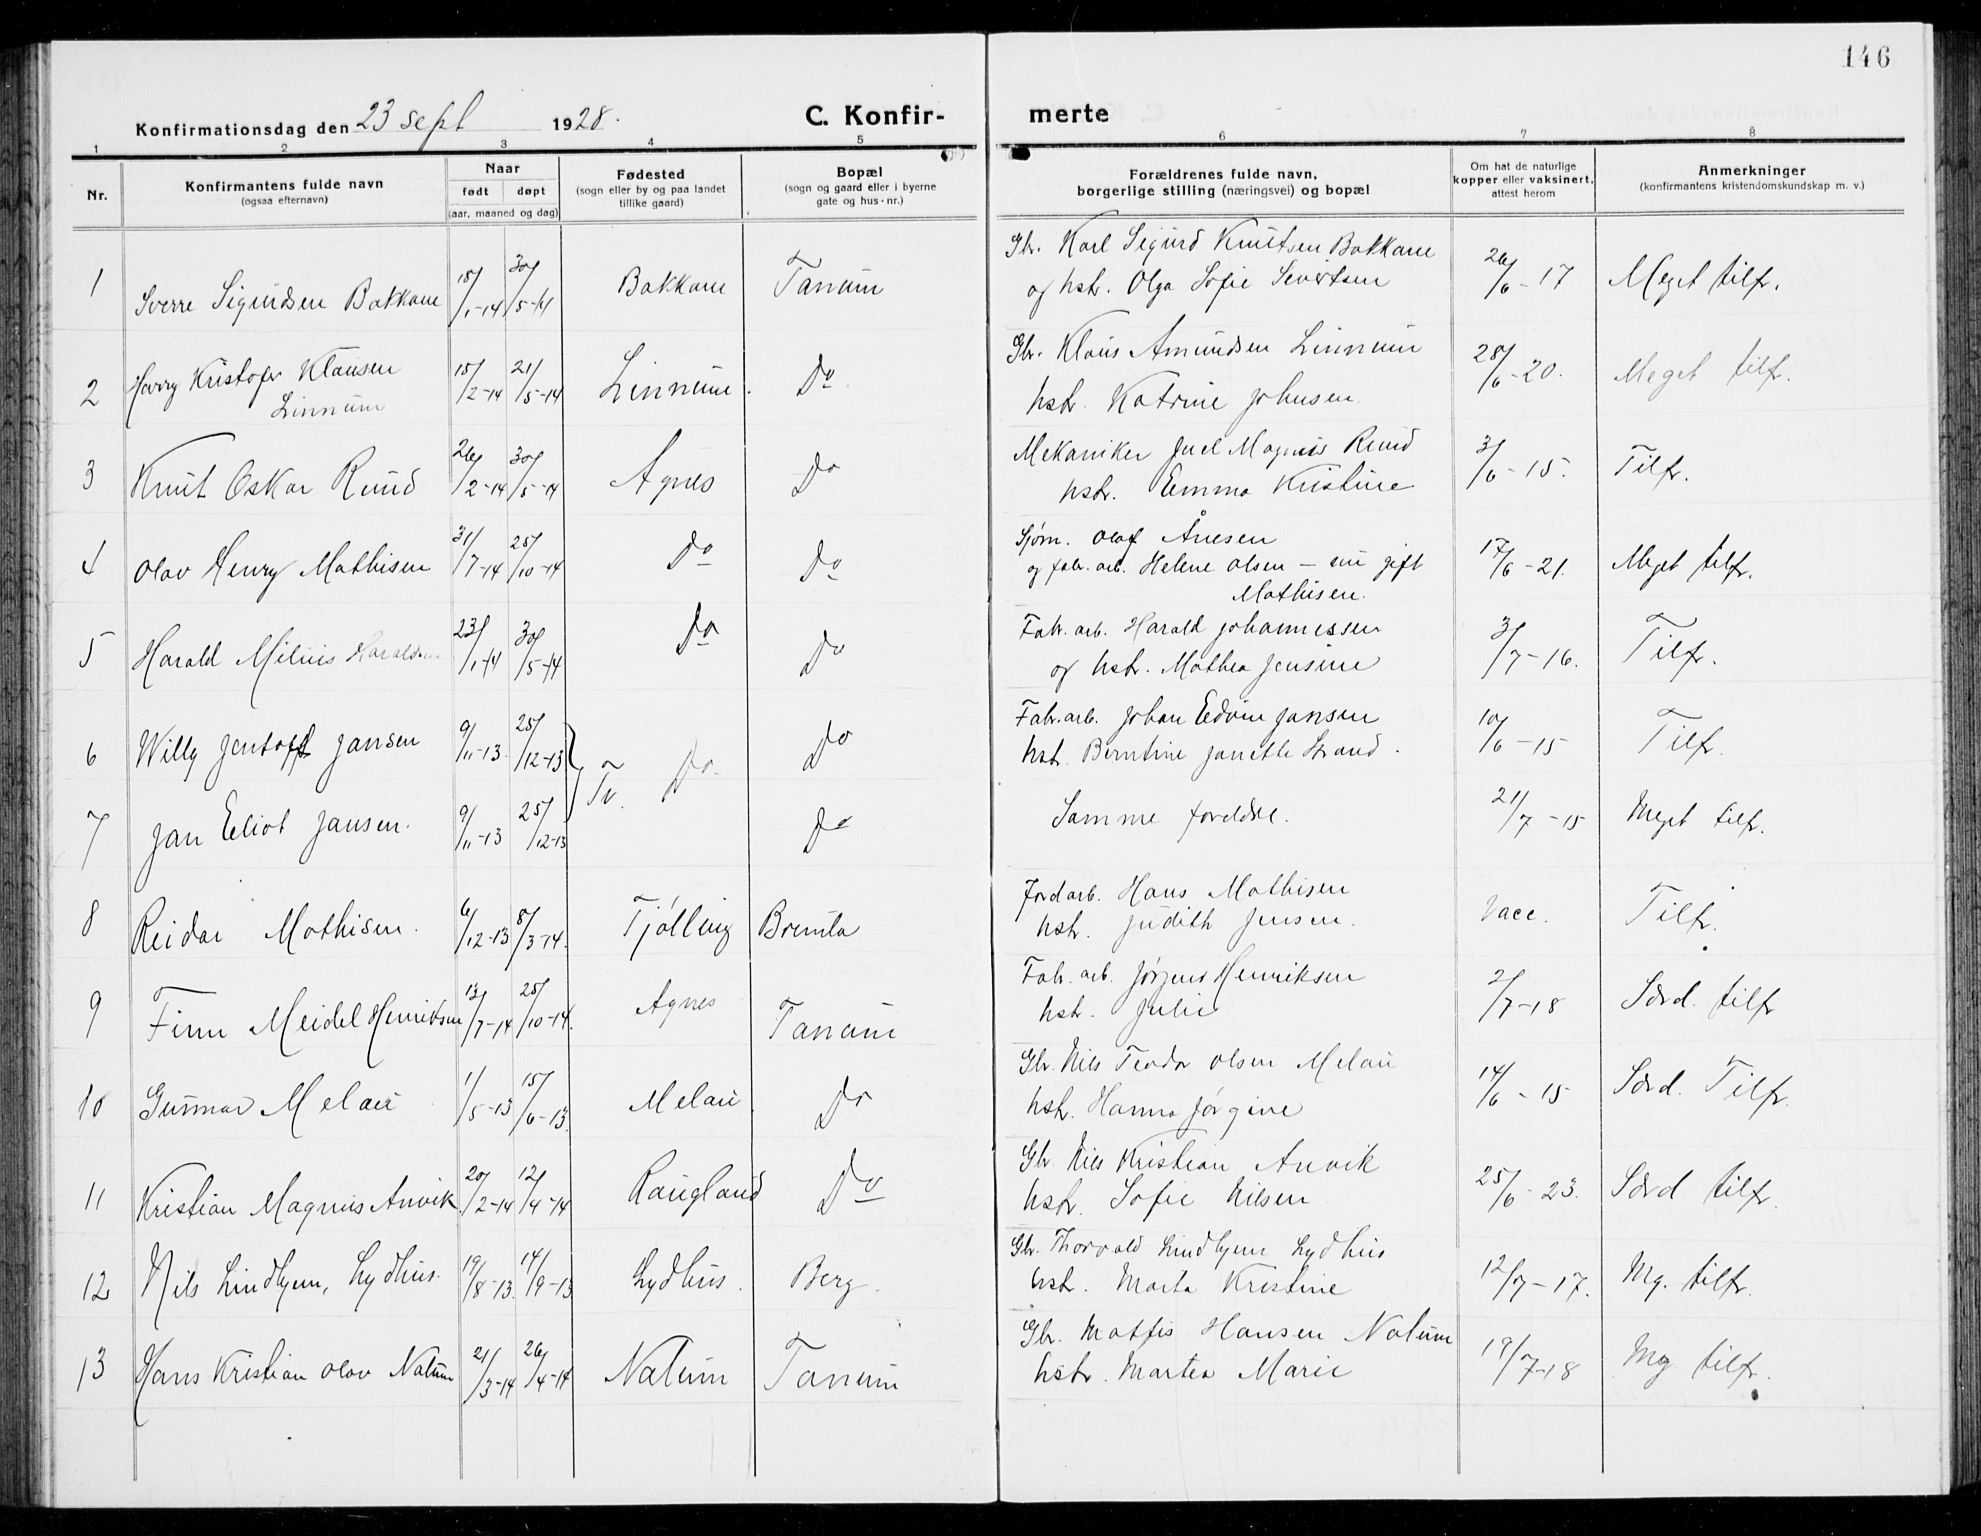 146
Konfirmationsdag den 23 sept 1928.
C. Konfir-
merte
1 2 3 4 5 6 7 8
Nr.
Konfirmantens fulde navn
(ogsaa efternavn)
Naar
født døpt
(aar, maaned og dag)
Fødested
(sogn eller by og paa landet
tillike gaard)
Bopæl
(sogn og gaard eller i byerne
gate og hus-nr.)
Forældrenes fulde navn,
borgerlige stilling (næringsvei) og bopæl
Om hat de naturlige
kopper eller vaksinert,
attest herom
Anmerkninger
(konfirmantens kristendomskundskap m. v.)
Gbr. Karl Sigurd Knutsen Bakkane
1 Sverre Sigurdsen Bakkane 18/1-14 30/5-14 Bakkane Tanum og hstr. Olga Sofie Severtsen 26/6-17 Meget tilfr.
Gbr. Klaus Amundsen Linnum
2 Harry Kristofer Klausen 15/2-14 21/5-14 Linnum. Do hstr. Katrine Johnsen. 28/6-20. Meget tilfr.
Linnum
Mekaniker Juel Magnus Ruud
3 Knut Oskar Ruud 26/2-14 30/5-14 Agnes Do hstr. Emma Kristine 3/6-15. Tilfr.
Sjøm. Olaf Ånesen
4 Olav Henry Mathisen 31/7-14 25/10-14 Do Do og fabr. arb. Helene Olsen — nu gift 17/6-21. Meget tilfr.
Mathisen.
Fabr. arb. Harald Johannessen
5 Harald Milius Haraldsen 23/1-14 30/5-14 Do Do og hstr. Mathea Jensine 3/7-16. Tilfr.
Fabr. arb. Johan Edvin Jansen
6 Willy Jentoft Jansen 9/11-13. 25/12-13 Tv. Do. Do hstr. Berntine Janette Strand. 10/6-15 Tilfr.
7 Jan Eliot Jansen. 9/11-13 25/12-13 Do Samme foreldre. 21/7-15 Meget tilfr.
Jordarb. Hans Mathisen
8 Reidar Mathisen. 6/12-13 8/3-14. Tjølling Bremla hstr. Judith Jensen. Vacc. Tilfr.
Fabr. arb. Jørgens Henriksen
9 Finn Meidel Henriksen 13/7-14 25/10-14. Agnes Tanum hstr. Julie 2/7-18 Særd. tilfr
Gbr. Nils Teodor Olsen Melau
10 Gunnar Melau 1/5-13 15/6-13. Melau Do hstr. Hanna Jørgine 14/6-15 Særd. Tilfr.
Gbr. Nils Kristian Anvik
11 Kristian Magnus Anvik 20/2-14 12/4-14 Raugland Do hstr. Sofie Nilsen 25/6-23. Særd tilfr.
Gbr. Thorvald Lindhjem Lydhus
12 Nils Lindhjem, Lydhus. 19/8-13. 14/9-13 Lydhus. Berg. hstr. Marta Kristine 12/7-17. Mg. tilfr.
Gbr. Mattis Hansen Nalum
13 Hans Kristian Olav Nalum 21/3-14 26/4-14 Nalum Tanum hstr. Martea Marie 19/7-18 Mg tilfr.